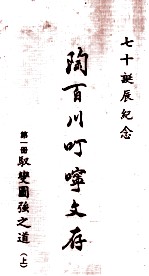 七十誕辰紀念
陶百川叮嚀文存
第一冊馭變圖強之道(上)